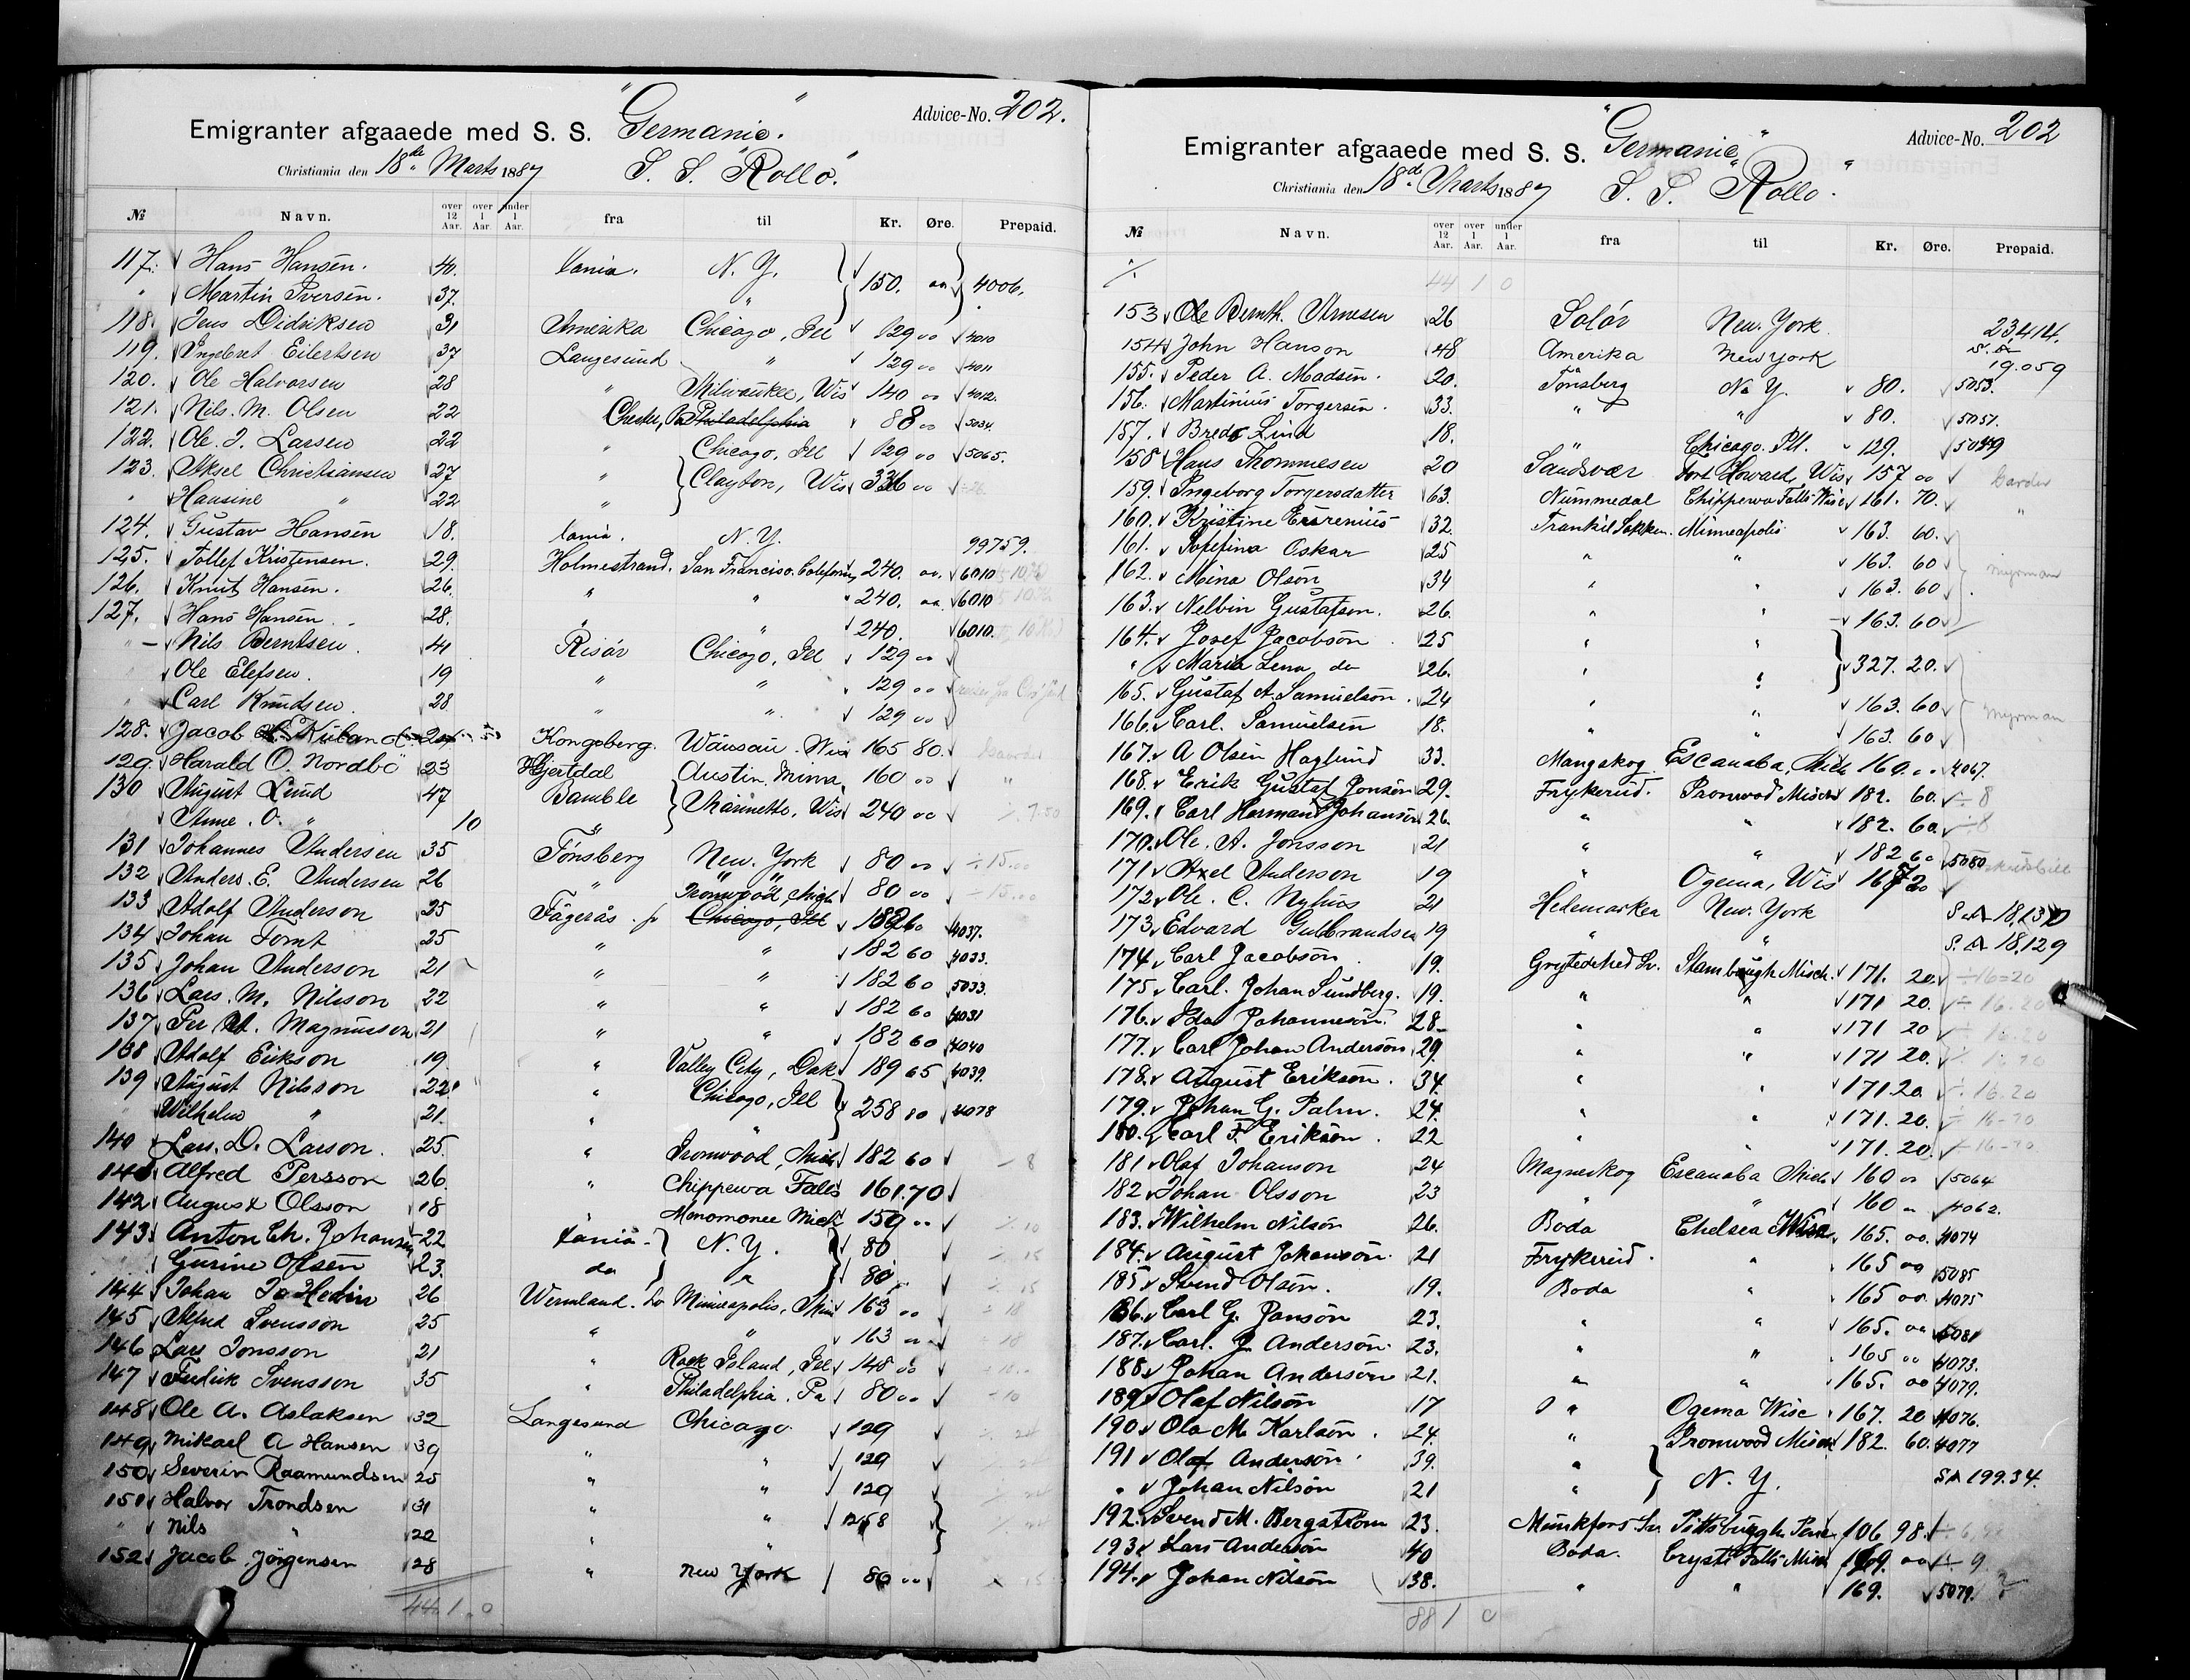 Emigranter afgaaede med S. S. "Germanic."
Advice-No. 202.
Christiania den 18de Marts 1887
S. S. "Rollo."
№ Navn. over 12 Aar. over 1 Aar. under 1 Aar. fra til Kr. Øre. Prepaid.
117. Hans Hansen. 40. Xania. N. Y. 150. 00 4006.
" Martin Iversen. 37. "
118. Jens Didriksen 31 Amerika Chicago, Ill 129 00 4010
119. Ingebret Eilertsen 37 Langesund " 129 00 4011
120. Ole Halvorsen 28 " Milwaukee, Wis 140 00 4012.
121. Nils. M. Olsen 22 Chester, Pa Philadelphia 88 00 5034.
122. Ole. J. Larsen 22 " Chicago, Ill 129 00 5065.
123. Aksel Christiansen 27 " Clayton, Wis 336 00
" Hansine " 22 "
124. Gustav Hansen 18. Xania. N. Y. 99759.
125. Tollef Kristensen. 29. Holmestrand. San Francisco. 240. 00. 6010
126. Knut Hansen. 26. " " 240. 00. 6010
127. Hans Hansen 28. " " 240. 6010.
" Nils Berntsen. 41 Risör Chicago, Ill 129 00
Ole Elefsen. 19 " " 129 00
" Carl Knudsen. 28 " " 129 00
128. Jacob Kongsberg. Wausau. Wis 165 80.
129. Harald O. Nordbö 23 Hjertdal Austin. Minn. 160 00 "
130 August Lund 47 Bamble Marinette, Wis 240 00 7.50
Anne. O. " 10 "
131 Johannes Andersen 35 Tönsberg New. York 80 00 ÷15.00
132 Anders. E. Andersen 26 " " 80 00 ÷15.00
133 Adolf Anderson 25 Fågerås. Ironwood, Mich Chicago, Ill 182 60 4037.
134 Johan Tornt 25 " " 182 60 4033.
135 Johan Anderson 21 " " 182 60 5033.
136 Lars. M. Nilsson 22 " " 182 60 4031
137 Per A. Magnusson 21 " " 182 60 4040
138 Adolf Erikson 19 " Valley City, Dak 189 65 4039.
139 August Nilsson 22 " Chicago, Ill 258 00 4078
" Wilhelm " 21. " "
140 Lars. D. Larson. 25. " Ironwood, Mich 182 60 8
141 Alfred Persson 26. " Chippewa Falls 161.70
142 August Olsson 18 " Menomonee Mich 159 00 10
143. Anton Ch. Johansen 22 Xania. N. Y. 80 15
Gurine Olsen 23. do " 80 15
144 Johan J. Hedin 26 Wermland. Minneapolis, Min 163 00 18
145 Alfred Svensson 25 " " 163 00 18
146 Lars Jonsson 21 " Rock Island, Ill 148 00
147 Fredrik Svensson 35 " Philadelphia. Pa 80 00 10
148 Ole A. Aslaksen 32 Langesund Chicago. 129
149 Mikael A Hansen 39 " " 129
150 Severin Raamundsen 25 " " 129
151 Halvor Trondsen 31 " " 258
" Nils " 22 " "
152 Jacob. Jörgensen 28 " New York 80 00 15
44. 1. 0
Emigranter afgaaede med S. S. "Germanic"
Advice-No. 202
Christiania den 18de Marts 1887
S. S. "Rollo."
№ Navn. over 12 Aar. over 1 Aar. under 1 Aar. fra til Kr. Øre. Prepaid.
⁒ 44 1 0
153 Ole Bernth. Arnesen 26 Solör New. York 23414.
154 John Hanson 48 Amerika New York S. A 19.059
155. Peder A. Madsen. 20. Tönsberg N. Y. 80. 5053.
156. Martinius Torgersen. 33. " " 80. 5051.
157. Brede Lind 18. " Chicago. Ill. 129.
158 Hans Thommesen 20 Sandsvær Fort Howard Wis 157 00 Garder
159. Ingeborg Torgersdatter 63. Nummedal Chippewa Falls Wisc 161. 70. "
160. Kristine 32. Minneapolis 163. 60.
161. Josefina Oskar 25 " " 163. 60
162. Mina Olson 34 " " 163. 60 Myrman
163. Nelbin Gustafson. 26. " " 163. 60
164. Josef Jacobson 25 " " 327. 20.
" Maria Lena do 26. " "
165. Gustaf A. Samuelson. 24 " " 163. 60
166. Carl. Samuelsen 18. " " 163. 60 Myrman
167. A Olsen Haglund 33. Mangskog Escanaba, Mich 160.00 4067.
168. Erik Gustaf Jonson 29. Frykerud. Ironwood Misch 182. 60. ÷8
169. Carl Herman Johanson 26. " " 182. 60. ÷8
170. Ole. A. Jonsson 21 " " 182 60 5080
171 Axel Anderson 19 " Ogema, Wis 167 20
172 Ole. C. Nyhus 21 Hedemarken New. York S. A
173 Edvard Gulbrandsen 19 " " S. A 18,129
174 Carl Jacobson 19. Stambaugh Misch. 171. 20. ÷16-20
175 Carl. Johan Sundberg. 19. " " 171 20. ÷ 16.20
176. Ida Johanneson. 28 " " 171 20 ÷ 16.20
177. Carl Johan Anderson 29. " " 171 20. ÷ 16.20
178. August Erikson. 34. " " 171.20 ÷ 16.20
179. Johan G. Palm. 24. " " 171. 20. ÷ 16-20
180. Carl F. Erikson. 22 " " 171. 20. ÷ 16-20
181 Olaf Johanson 24 Magnskog Escanaba Mich 160 00 5064
182 Johan Olsson 23 " " 160 " 4062.
183. Wilhelm Nilson 26. Boda Chelsea Wisc 165. 00. 4074
184. August Johanson. 21 Frykerud. " 165 00 5085
185 Svend Olson. 19. Boda " 165 00. 4075
186. Carl G. Janson 23. " " 165. 00 5081
187. Carl. J. Anderson. 23. " " 165 00 4073.
188 Johan Anderson 21. " " 165. 00 4079.
189 Olaf Nilson 17 " Ogema Wisc 167. 20 4076.
190 Ola M. Karlson. 24. " Ironwood Misch 182. 60. 4077
191 Olaf Anderson 39. " N. Y. SA 199.34.
" Johan Nilson 21 "
192. Svend M. Bergstrom 23. Munkfors Sv. Pittsburgh Penn 106 98.
193 Lars Anderson 40 Boda. Crystal Falls Mich 169. 00 ÷ 9
194. Johan Nilson 38. " " 169. 5079.
88 1 0